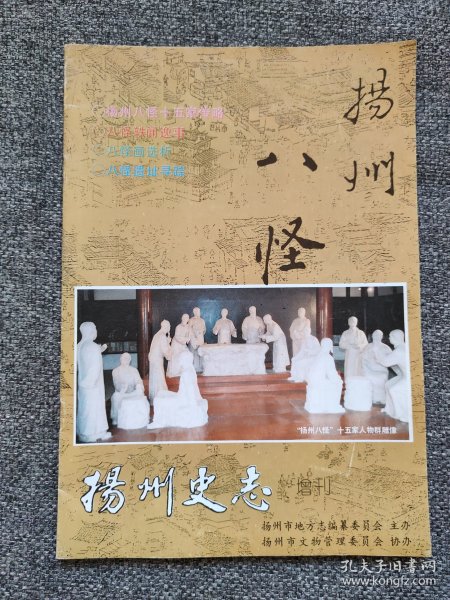 扬州
八怪
扬州八怪十五家传略
八怪轶闻逸事
八怪画选析
“扬州八怪”十五家人物群雕像
扬州史志
增刊
扬州市地方志编纂委员会 主办
扬州市文物管理委员会 协办
孔夫子旧书网
www.kongfz.com